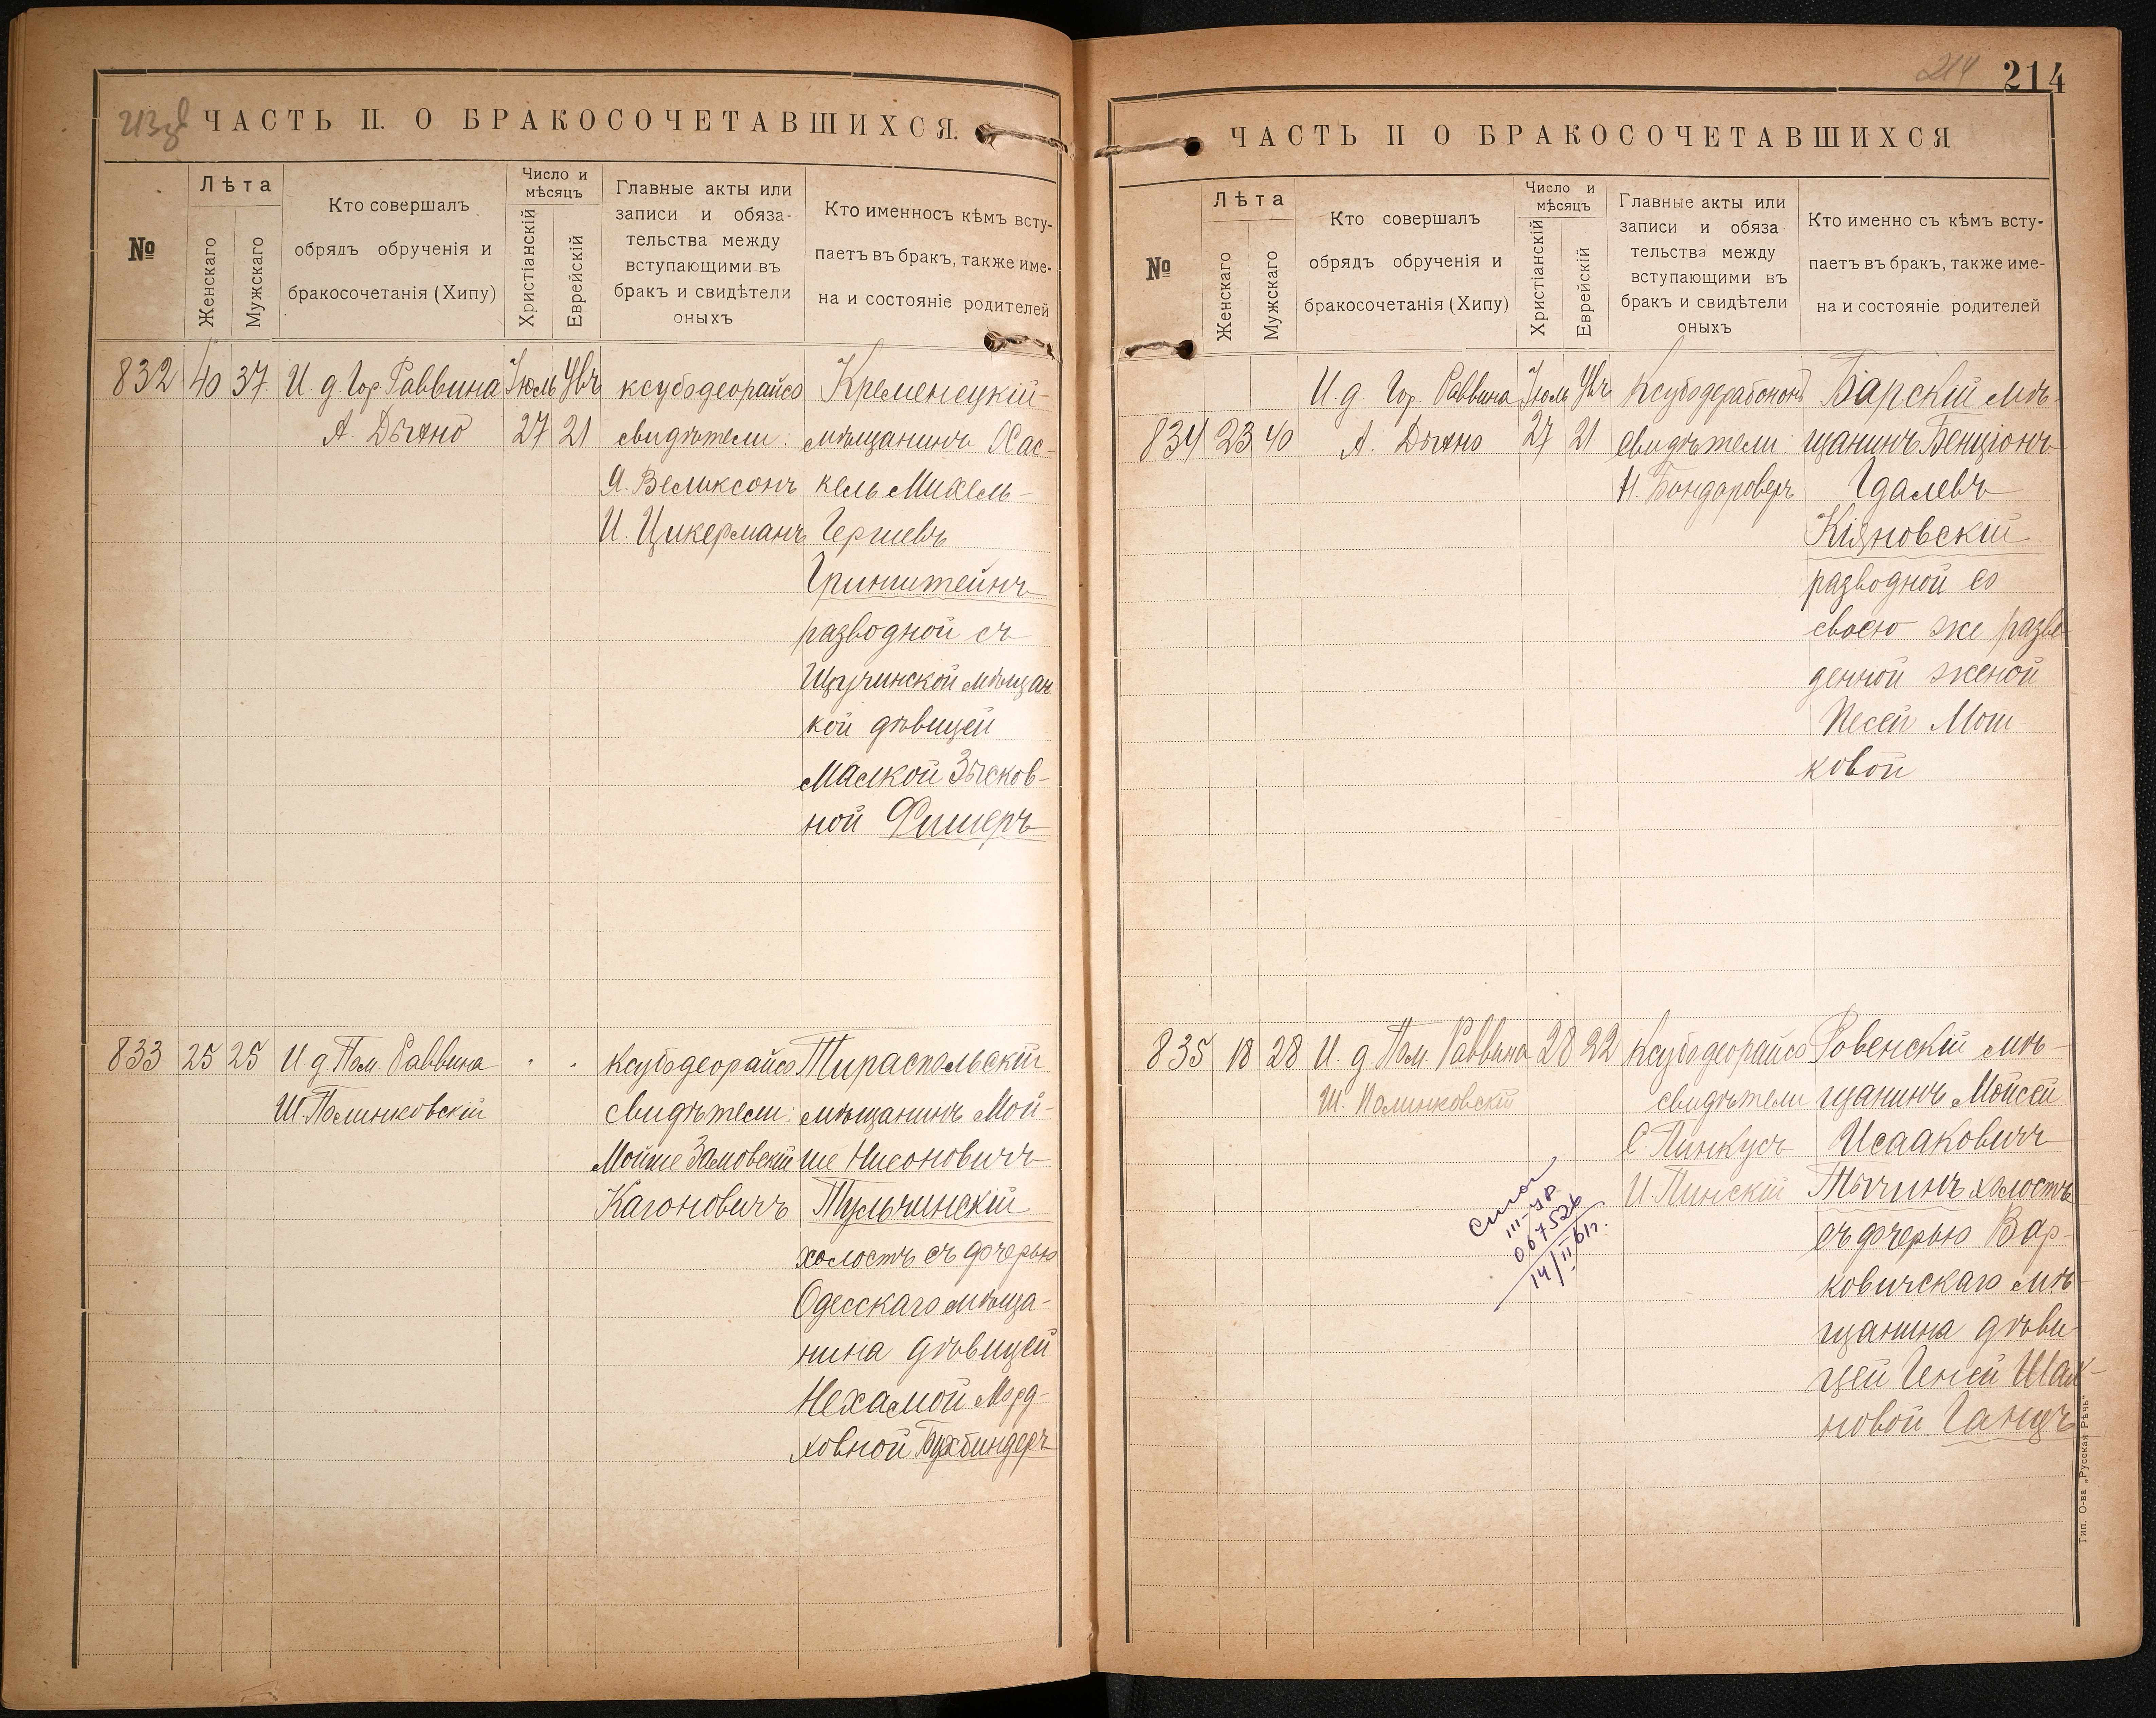 213 об
ЧАСТЬ II. О БРАКОСОЧЕТАВШИХСЯ.
№
Лѣта
Женскаго
Мужскаго
Кто совершалъ
обрядъ обрученія и
бракосочетанія (Хипу)
Число и
мѣсяцъ
Христіанскій
Еврейскій
Главные акты или
записи и обяза-
тельства между
вступающими въ
бракъ и свидѣтели
оныхъ
Кто именносъ кѣмъ всту-
паетъ въ бракъ, также име-
на и состояніе родителей
832 40 37
И. д. Гор. Раввина
А. Дыхно
Іюль
27
21
ксубодеорайсо
свидѣтели:
Я. Великсонъ
И. Цикерманъ
Кременецкій
мѣщанинъ Хас-
кель Михель-
Гершевъ
Гринштейнъ
разводной съ
Щучинской мѣщан-
кой дѣвицей
Малкой Зысков-
ной Фишеръ
833 25 25
И. д. Пом. Раввина
Ш. Полинковскій
" "
ксубодеорайсо
свидѣтели:
Мойше Замовскій
Кагоновичъ
Тираспольскій
мѣщанинъ Мой-
ше Нисоновичъ
Тульчинскій
холостъ съ дочерью
Одесскаго мѣща-
нина дѣвицей
Нехамой Морд-
ховной Бухбиндеръ
214
214
ЧАСТЬ II О БРАКОСОЧЕТАВШИХСЯ
№
Лѣта
Женскаго
Мужскаго
Кто совершалъ
обрядъ обрученія и
бракосочетанія (Хипу)
Число и
мѣсяцъ
Христіанскій
Еврейскій
Главные акты или
записи и обяза
тельства между
вступающими въ
бракъ и свидѣтели
оныхъ
Кто именно съ кѣмъ всту-
паетъ въ бракъ, также име-
на и состояніе родителей
834 23 40
И. д. Гор. Раввина
А. Дыхно
Іюль
27
21
свидѣтели
Н. Бондароверъ
Барскій мѣ-
щанинъ Бенціонъ
Гдалевъ
Кіяновскій
разводной со
своею же разве-
денной женой
Песей Мош-
ковой
835 18 28
И. д. Пом. Раввина
Ш. Полинковскій
28 22
Ксубодеорайсо
свидѣтели
С. Пинкусъ
И. Пинскій
Ровенскій мѣ-
щанинъ Мойсей
Исааковичъ
Тычинъ холостъ
съ дочерью Вар-
ковичскаго мѣ-
щанина дѣви-
цей Геней Шах-
новой Ганцъ
III-ЧР
067526
14/II 61г.
Тип. О-ва „Русская Рѣчь"